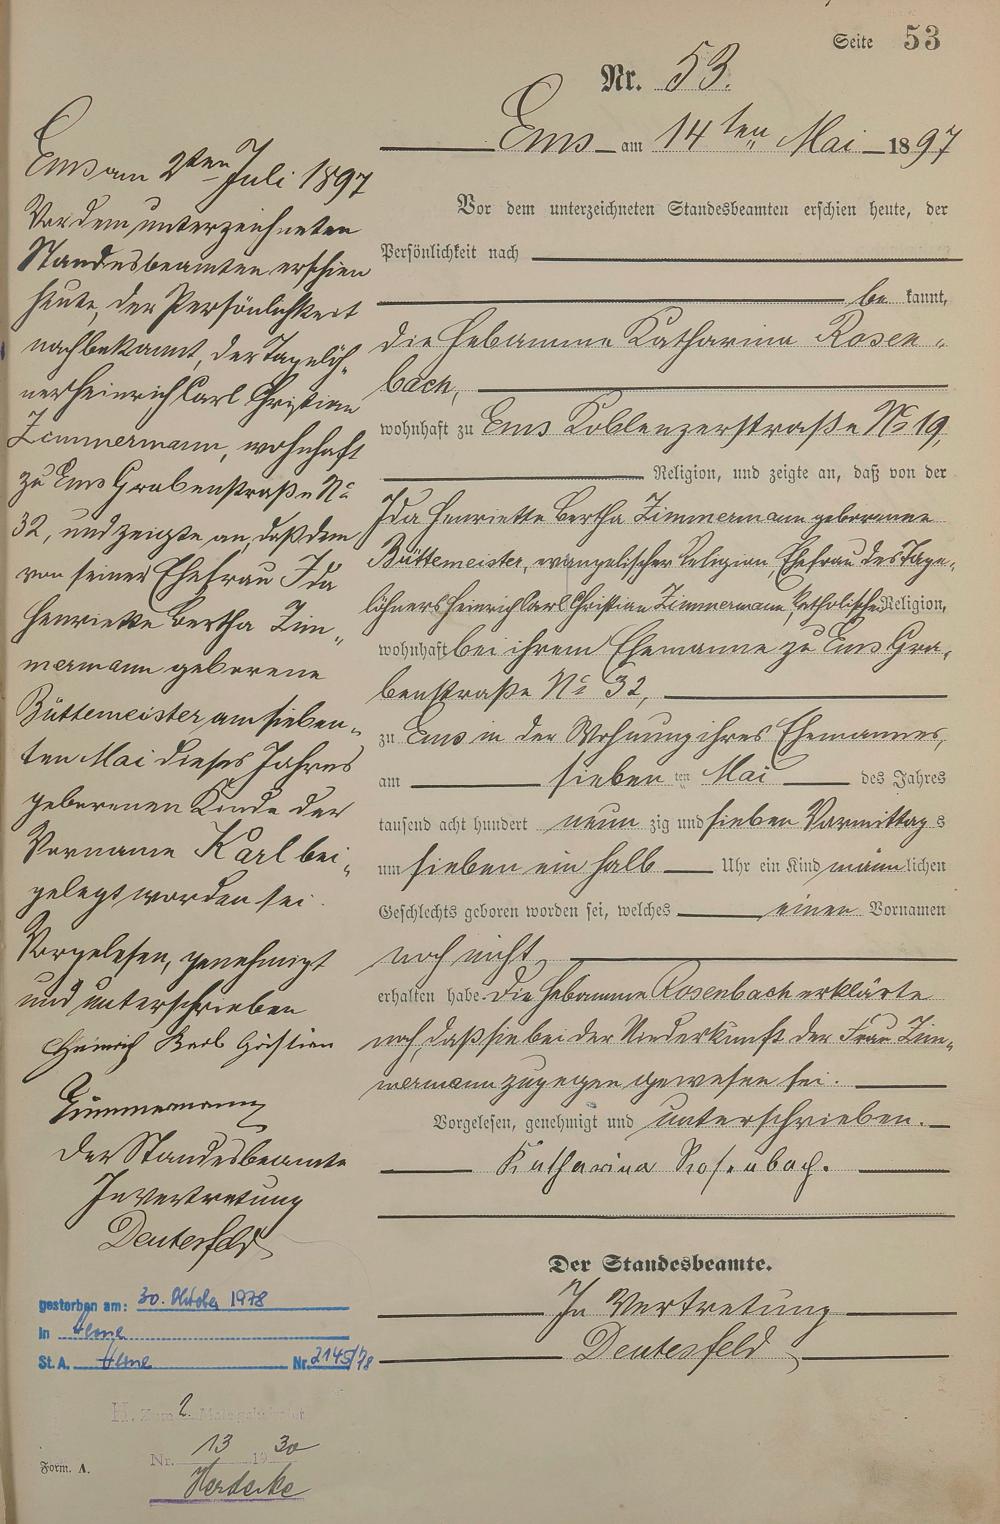 Seite 53
Nr. 53.
Ems am 14ten Mai 1897
Vor dem unterzeichneten Standesbeamten erschien heute, der
Persönlichkeit nach
be kannt,
die Hebamme Katharina Rosen-
bach,
wohnhaft zu Ems Koblenzerstraße No 19,
Religion, und zeigte an, daß von der
Ida Henriette Bertha Zimmermann geborenne
Büttemeister, evangelischer Religion, Ehefrau des Tage-
löhners Heinrich Carl Christian Zimmermann, katholischer Religion,
wohnhaft bei ihrem Ehemanne zu Ems Gra-
benstraße No 32,
zu Ems in der Wohnung ihres Ehemannes,
am sieben ten Mai des Jahres
tausend acht hundert neun zig und sieben Vormittag s
um sieben ein halb Uhr ein Kind männ lichen
Geschlechts geboren worden sei, welches einen Vornamen
noch nicht
erhalten habe. Die Hebamme Rosenbach erklärte
noch, daß sie bei der Niederkunft der Frau Zim-
mermann zugegen gewesen sei.
Vorgelesen, genehmigt und unterschrieben.
Katharina Rosenbach.
Der Standesbeamte.
In Vertretung
Deutesfeld
Ems am 2ten Juli 1897
Vor dem unterzeichneten
Standesbeamten erschien
heute, der Persönlichkeit
nach bekannt, der Tagelöh-
ner Heinrich Carl Christian
Zimmermann, wohnhaft
zu Ems Grabenstraße No
32, und zeigte an, daß dem
von seiner Ehefrau Ida
Henriette Bertha Zim-
mermann geborene
Büttemeister am sieben-
ten Mai dieses Jahres
geborenen Kinde der
Vorname Karl bei-
gelegt worden sei.
Vorgelesen, genehmigt
und unterschrieben
Heinrich Karl Christian
Zimmermann
Der Standesbeamte
In Vertretung
Deutesfeld
gestorben am: 30. Oktober 1978
in Herne
St. A. Herne Nr. 2145/78
H. 2
Nr. 13 1930
Herdecke
Form. A.